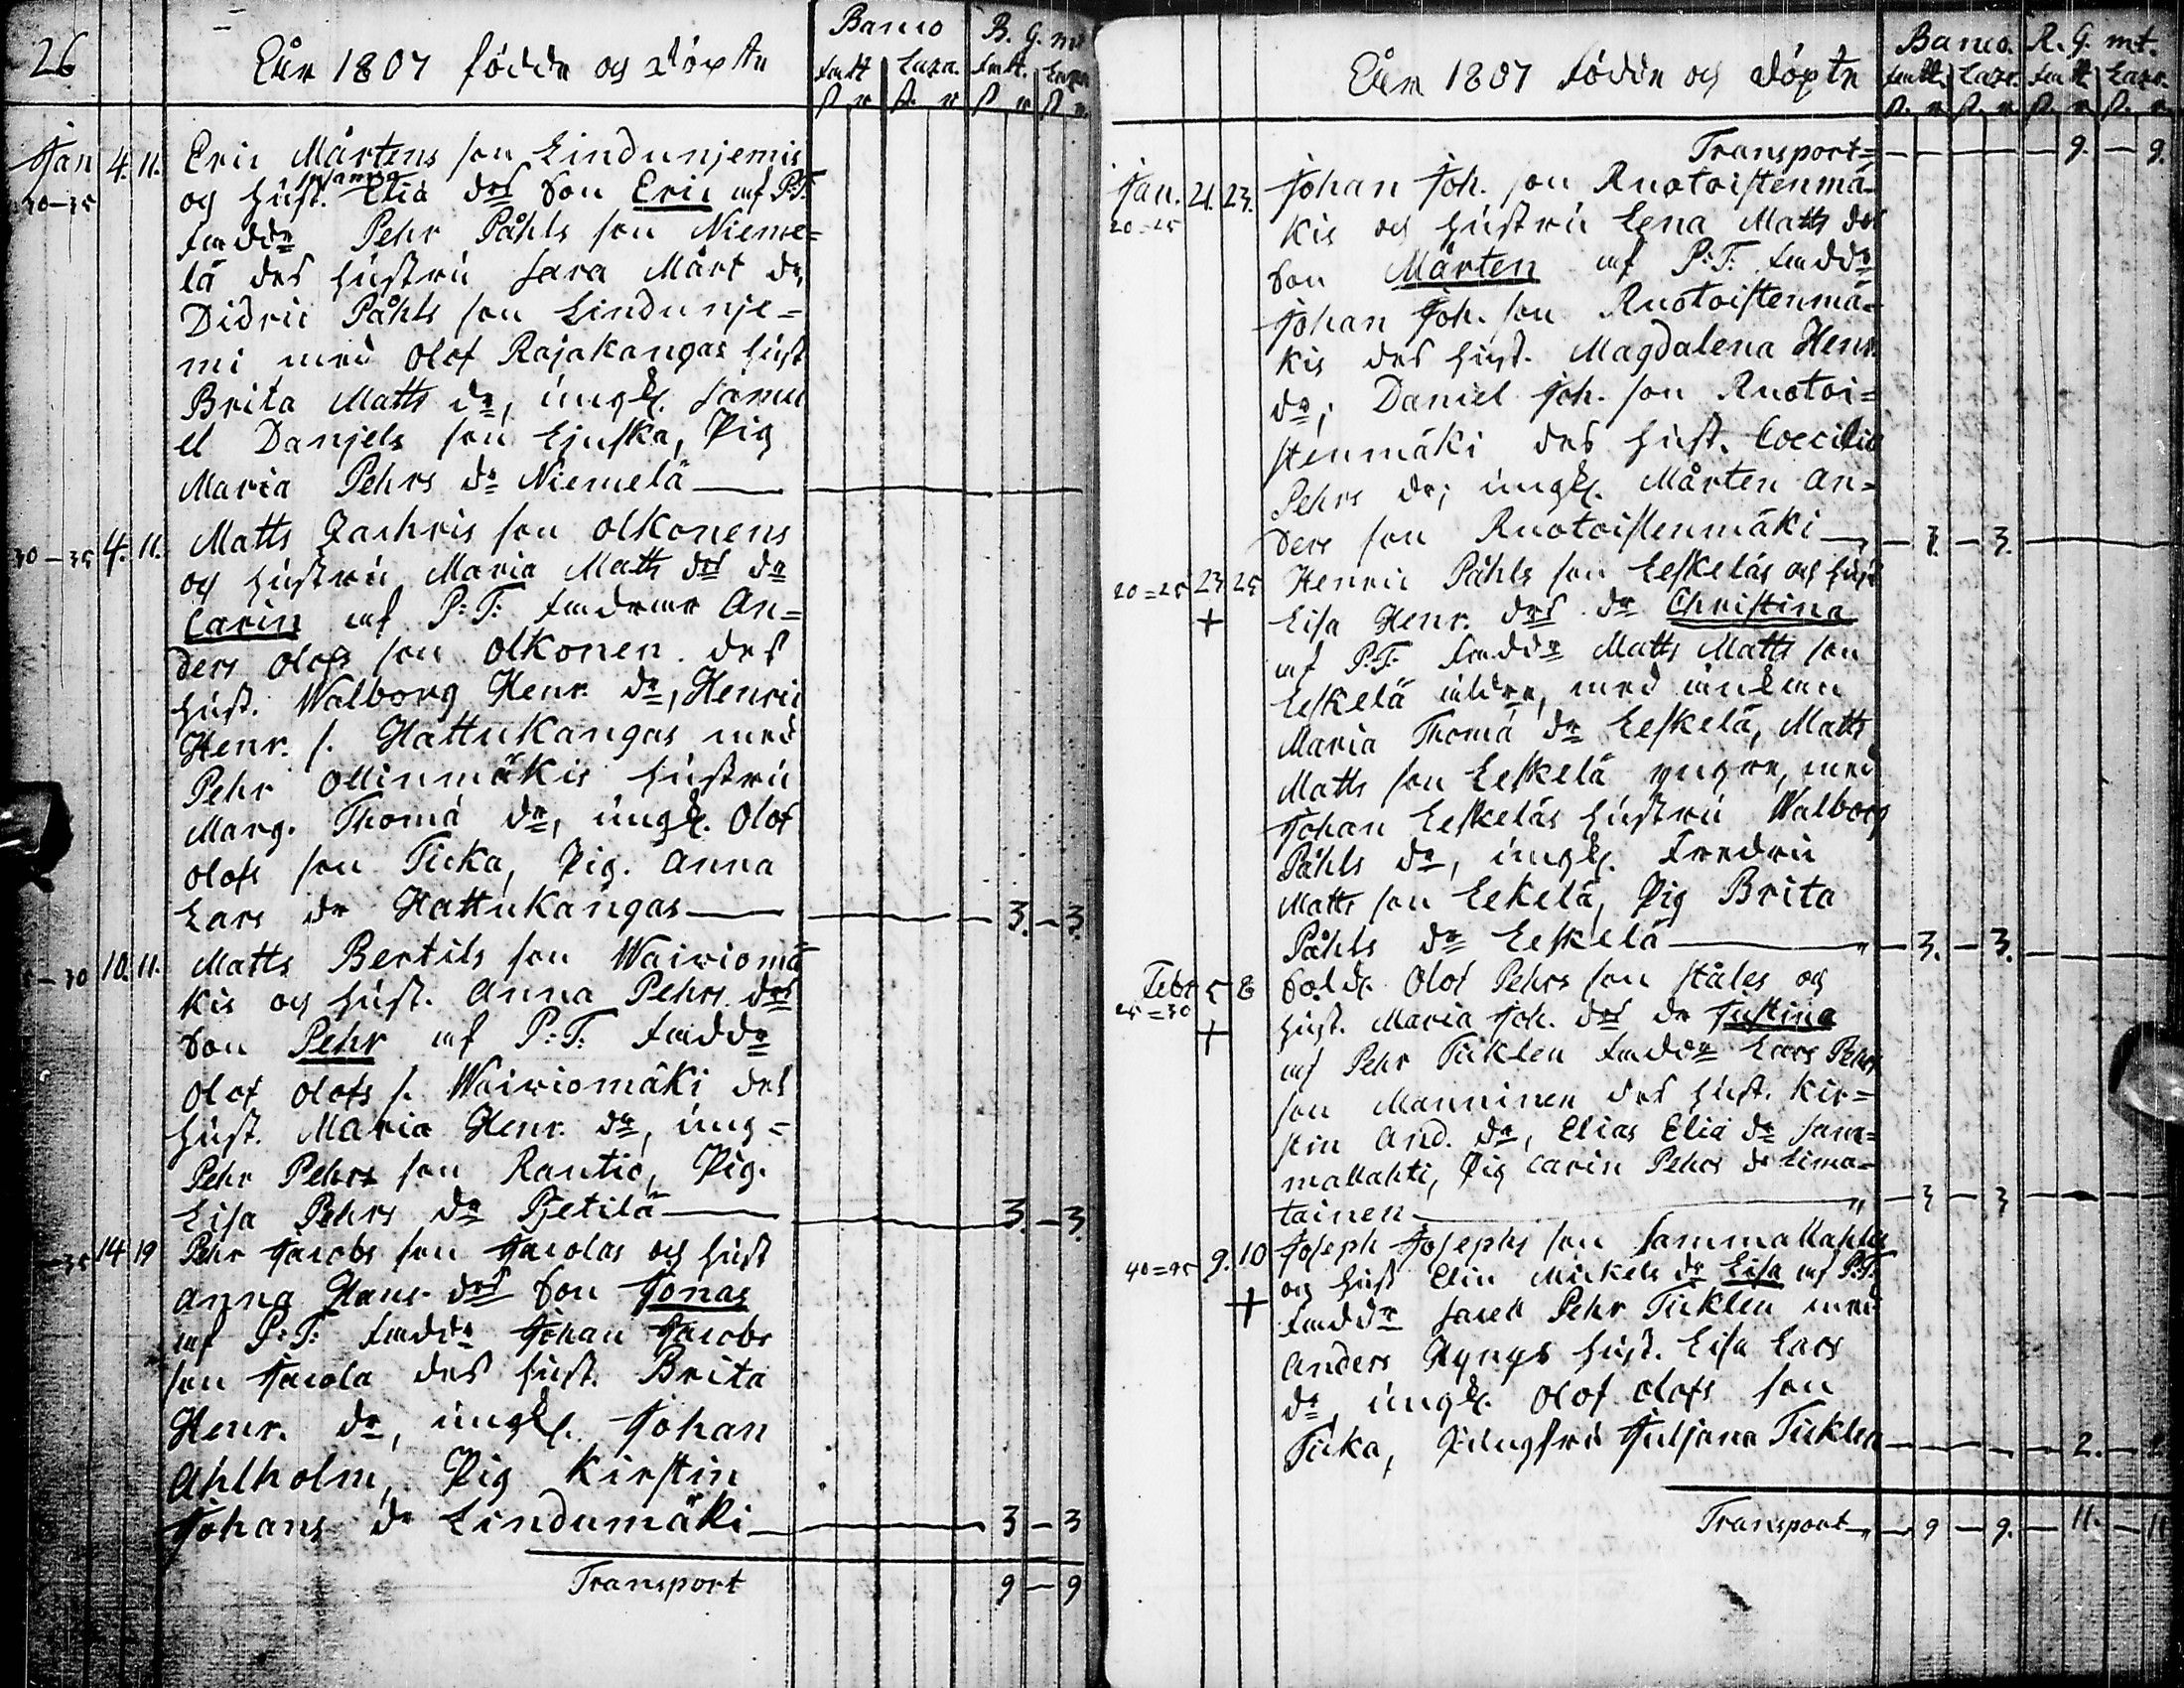 26
Åår 1807 födde og döpte
Banco
R. G. mt
fatt. Laza. fatt. Laza
Jan 4. 11. Eric Mårtens son Lindunjemis
30-35 og hust. Susanna Eliæ drs Son Eric af P:T:
faddr Pehr Påhls son Nieme=
lä des hustru Sara Mårt dr,
Didric Påhls son Lindunje=
mi med Olof Rajakangas hust
Brita Matts dr, ungk. Samu
el Danjels son Ljuska, Pig
Maria Pehrs dr Niemelä
30-35 4. 11. Matts Zachris son Olkonens
og hustru Maria Matts drs dr
Carin af P:T: faddrar An=
ders Olofs son Olkonen des
hust. Walborg Henr. dr, Henric
Henr. s. Hattukangas med
Pehr Ollinmäkis hustru
Marg. Thomæ dr, ungk. Olof
Olofs son Ticka, Pig. Anna
Lars dr Hattukangas 3. - 3.
-30 10. 11. Matts Bertils son Waiviomä
kis og hust. Anna Pehrs drs
Son Pehr af P:T: faddr
Olof Olofs s. Waiviomäki des
hust. Maria Henr. dr, ung=
Pehr Pehrs son Rantio, Pig.
Lisa Pehrs dr Pjetilä 3. - 3.
-35 14 19 Pehr Jacobs son Jacolas og hust
Anna Hans drs Son Jonas
af P:T: faddr Johan Jacobs
son Jacola des hust. Brita
Henr. dr, ungk. Johan
Ahlholm, Pig Kirstin
Johans dr Lindumäki 3 - 3
Transport 9 - 9
Åår 1807 födde og döpte
Banco. R. G. mt.
fatt. Laza. fatt Laza.
Transport= 9. - 9.
Jan. 21. 23. Johan Joh. son Ruotoistenmä
20=25 kis og hustru Lena Matts drs
Son Mårten af P:T: faddr
Johan Joh. son Ruotoistenmä=
kis des hust. Magdalena Henr.
dr; Daniel Joh. son Ruotoi=
stenmäki des hust. Cæcilia
Pehrs dr; ungk. Mårten An=
ders son Ruotoistenmäki 3. - 3.
20=25 23 25 Henric Påhls son Leskeläs og hust
+ Lisa Henr. drs dr Christina
af P:T: faddr Matts Matts son
Leskelä äldre, med änkan
Maria Thomæ dr Leskelä, Matts
Matts son Leskelä yngre, med
Johan Leskeläs hustru Walborg
Påhls dr, ungk. Fredric
Matts son Lekelä, Pig Brita
Påhls dr Leskelä 3. - 3.
Febr 5 8 Sold. Olof Pehrs son Ståles og
25=30 hust. Maria Joh. drs dr Justina
+ af Pehr Ticklen faddr Lars Pehrs
son Manninen des hust. Kir=
stin And. dr, Elias Eliæ dr Sam=
mallahti, Pig Carin Pehrs dr Lima=
tainen 3 - 3
40=45 9. 10 Joseph Josephs son Sammallahtis
og hust Elin Mickels dr Lisa af P:T:
+ faddr Sacell Pehr Ticklen med
Anders Hynys hust. Lisa Lars
dr, ungk. Olof Olofs son
Ticka, Jungfru Juljana Ticklen 2. - 2
Transport 9 - 9. - 11. - 11